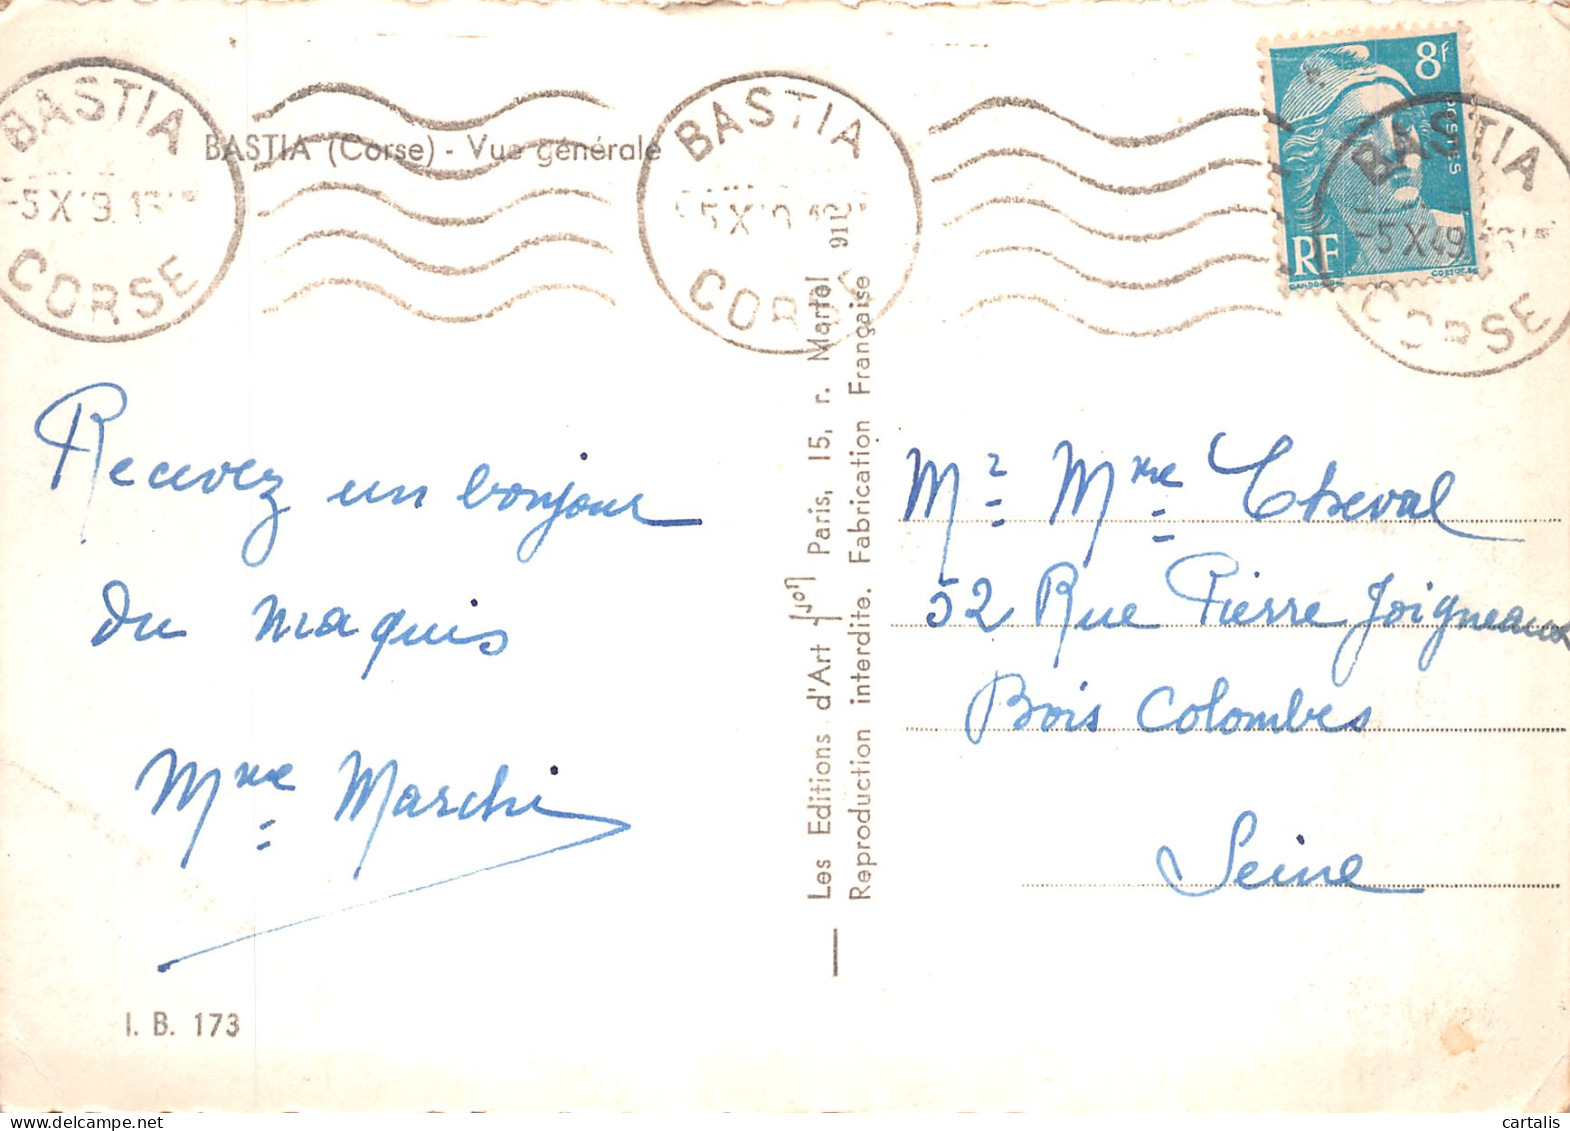 BASTIA
-5 X
CORSE
BASTIA (Corse) - Vue générale
BASTIA
5 X
8F
POSTES
RF
GANDON
CORTOT. SC
BASTIA
-5 X 49
CORSE
Recevez un bonjour
du maquis
Mme Marchi
I. B. 173
Les Editions d'Art Yvon Paris, 15, r. Martel
Reproduction interdite. Fabrication Française
Mr Mme Cheval
52 Rue Pierre Joigneaux
Bois Colombes
Seine
cartalis